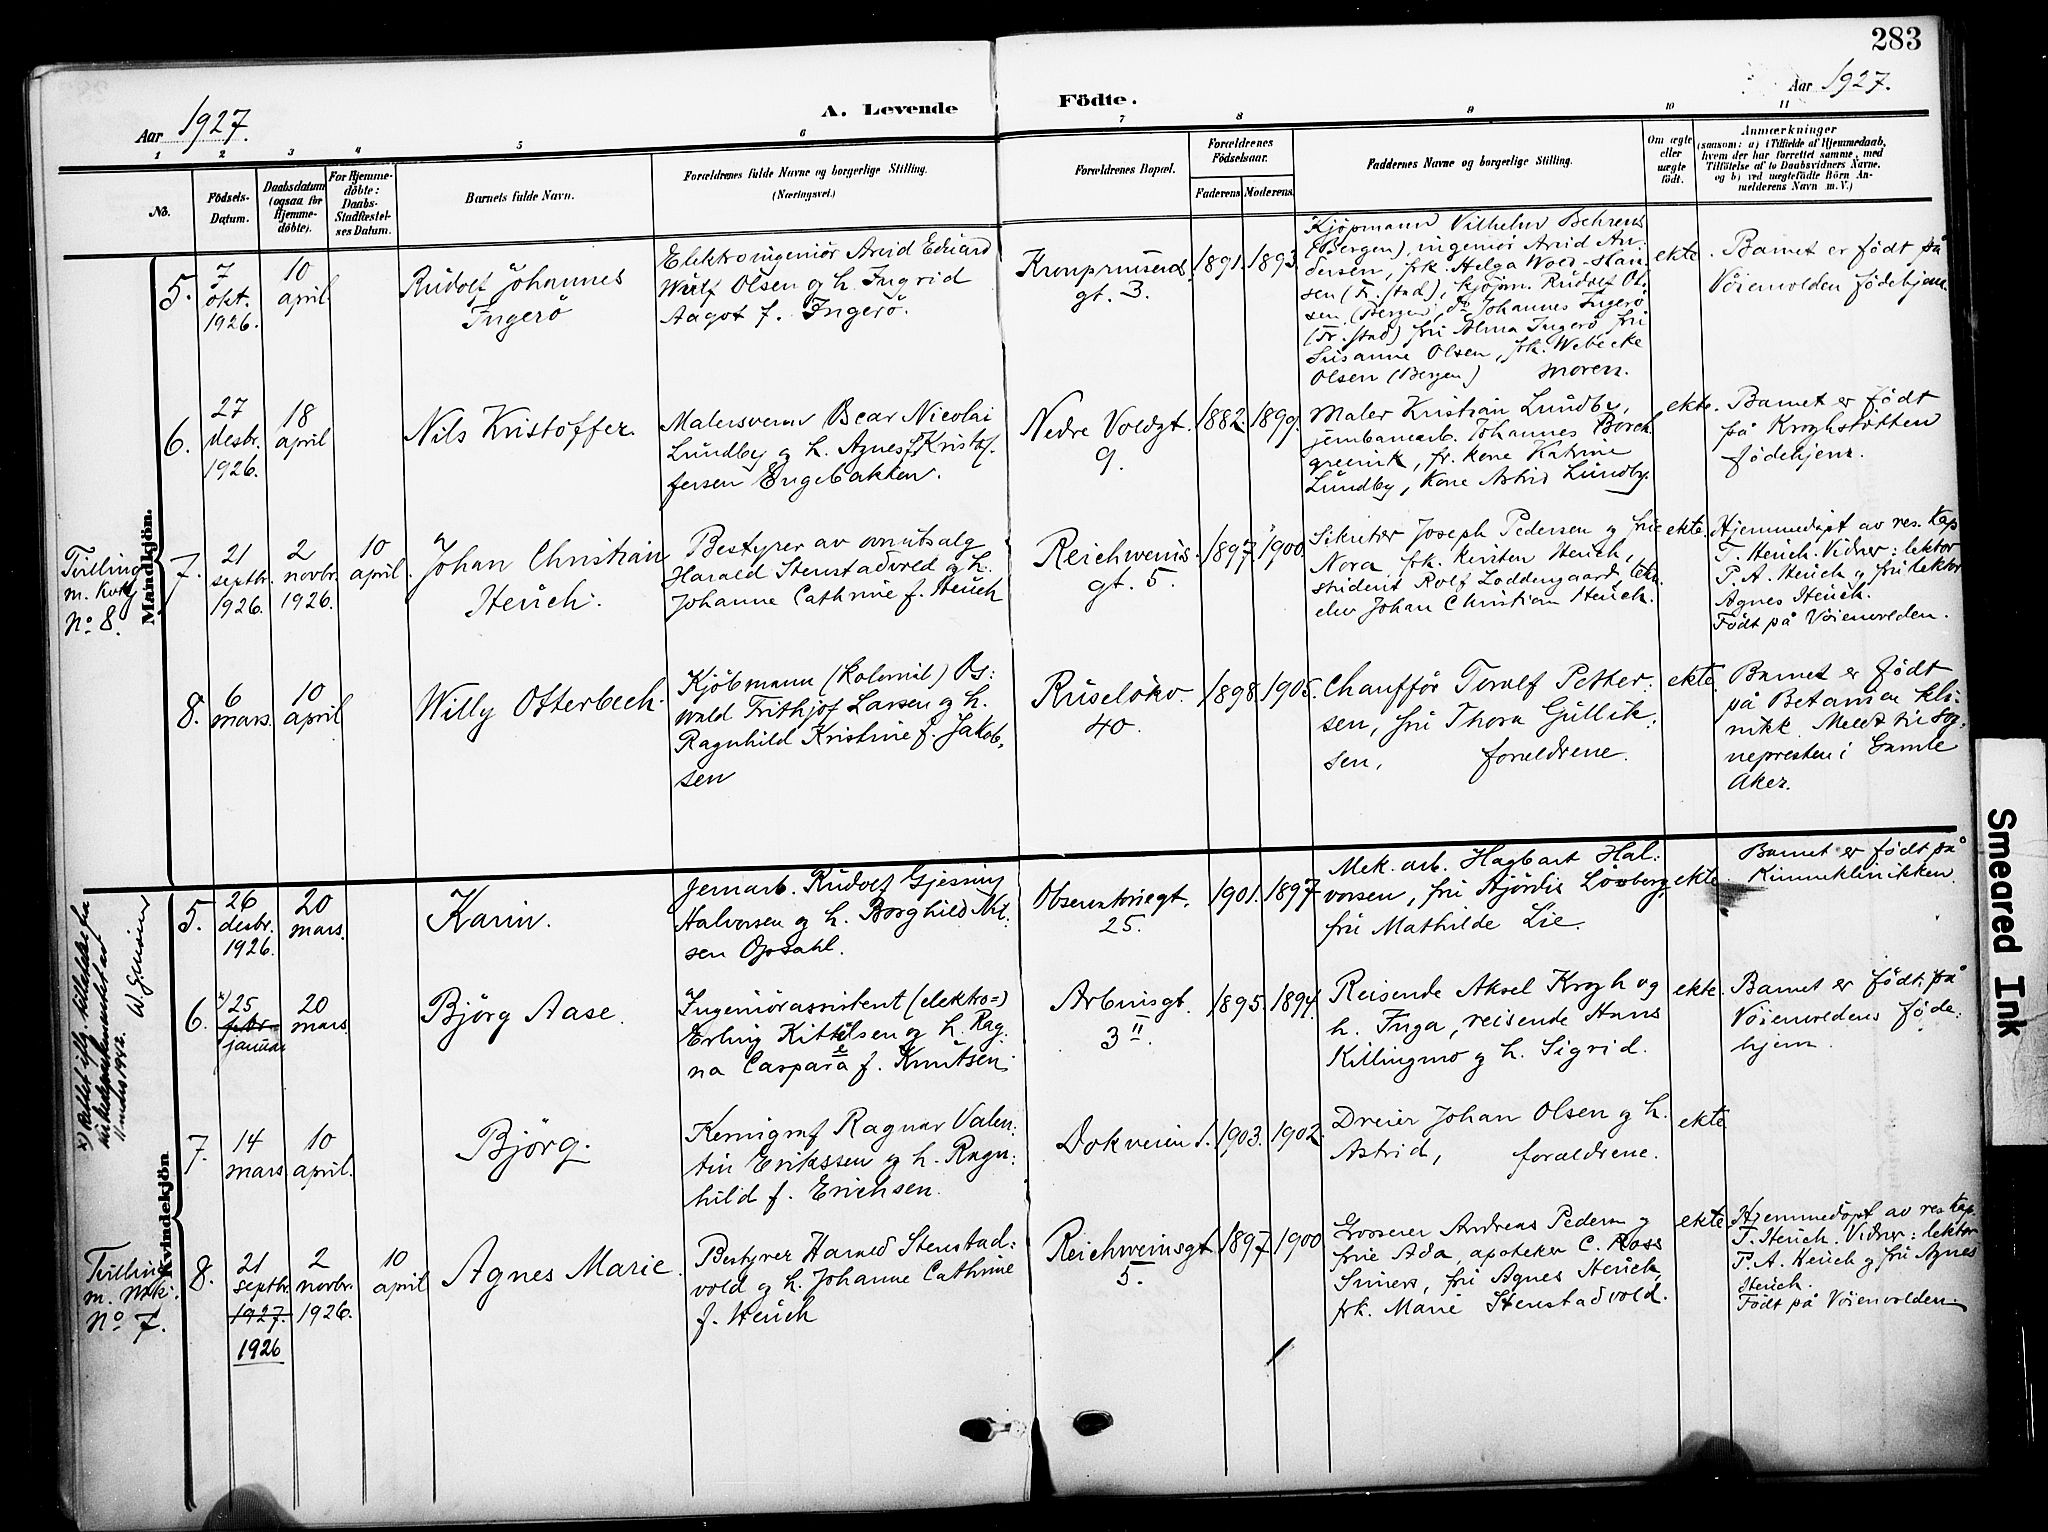 283
Aar 1927.
A. Levende Födte.
Aar 1927.
1 2 3 4 5 6 7 8 9 10 11
No.
Födsels-
Datum.
Daabsdatum
(ogsaa for
Hjemme-
döbte).
For Hjemme-
döbte:
Daabs-
Stadfæstel-
ses Datum.
Barnets fulde Navn.
Forældrenes fulde Navne og borgerlige Stilling.
(Næringsvei.)
Forældrenes Bopæl.
Forældrenes
Födselsaar.
Faderens. Moderens.
Faddernes Navne og borgerlige Stilling.
Om ægte
eller
uægte
födt.
Anmærkninger
(saasom: a) i Tilfælde af Hjemmedaab,
hvem der har forrettet samme, med
Tilföielse af to Daabsvidners Navne,
og b) ved uægtefödte Börn An-
melderens Navn m. V.)
Mandkjön.
5.
7
okt.
1926.
10
april.
Rudolf Johannes
Ingerö
Elektroingeniör Arvid Edvard
Wulf Olsen og h. Ingrid
Aagot f. Ingerö.
Kronprinsens
gt. 3.
1891. 1893.
Kjöpmann Vilhelm Behrens
(Bergen), ingeniör Arvid An-
dersen, frk. Helga Wold-Han
sen (Fr.stad), kjöpm. Rudolf Ol-
sen (Bergen), do Johannes Ingerö
(Fr.stad) fru Alma Ingerö, fru
Susanne Olsen, frk. Webecke
Olsen (Bergen) moren.
ekte.
Barnet er födt på
Vöienvolden födehjem.
6.
27
desbr.
1926.
18
april
Nils Kristoffer.
Malersvenn Oscar Nicolai
Lundby og h. Agnes f. Kristof-
fersen Engebakken.
Nedre Voldgt.
9.
1882. 1899.
Maler Kristian Lundby,
jernbanearb. Johannes Borch
grevink, fr. kone Katrine
Lundby, Kone Astrid Lundby.
ekte.
Barnet er födt
på Kroghstötten
födehjem.
Tvilling
m. Kvkj
No 8.
7.
21
septbr.
1926.
2
novbr.
1926.
10
april.
Johan Christian
Heuch.
Bestyrer av ovnutsalg
Harald Stenstadvold og h.
Johanne Cathrine f. Heuch
Reichweins
gt. 5.
1897. 1900.
Sekretær Joseph Pedersen og frue
Nora, frk. Kirsten Heuch,
student Rolf Loddengaard, tekn.
elev Johan Christian Heuch.
ekte.
Hjemmedöpt av res. Kap
T. Heuch. Vidner: lektor
P. A. Heuch og fru lektor
Agnes Heuch.
Födt på Vöienvolden.
8.
6
mars.
10
april
Willy Otterbech.
Kjöbmann (kolonial) Os:
vald Frithjof Larsen og h.
Ragnhild Kristine f. Jakob,
sen
Ruselökv.
40.
1898. 1905.
Chaufför Toralf Petter:
sen, fru Thora Gullik:
sen, foreldrene.
ekte.
Barnet er födt
på Betanien kli:
nikk. Meldt til sog.
nepresten i Gamle
Aker.
Kvindekjön
5.
26
desbr.
1926.
20
mars.
Karin.
Jernarb. Rudolf Gjessing
Halvorsen og h. Borghild Nil.
sen Opsahl.
Observatoriegt.
25.
1901. 1897
Mek. arb. Hagbart Hal:
vorsen, fru Hjördis Löxberg,
fru Mathilde Lie.
ekte.
Barnet er födt på
Kvinneklinikken.
x) Rettet iflg. tillatelse fra
kirkedepartementet av
11 mars 1942.
6.
x) 25
febr.
januar
20
mars.
Björg Aase.
Ingeniörassistent (elektro=)
Erling Kittelsen og h. Rag.
na Caspara f. Knutsen.
Arbinsgt.
3 II.
1895. 1894.
Reisende Aksel Krogh og
h. Inga, reisende Hans
Killingmo og h. Sigrid.
ekte.
Barnet er födt på
Vöienvoldens föde:
hjem.
7.
14
mars
10
april.
Björg.
Kemigraf Ragnar Valen:
tin Erikssen og h. Ragn:
hild f. Erichsen.
Dokveien 1.
1903. 1902.
Dreier Johan Olsen og h.
Astrid, foreldrene.
ekte
Tvilling
m. Mkj.
No 7.
8.
21
septbr.
1927.
1926
2
novbr.
1926.
10
april
Agnes Marie.
Bestyrer Harald Stenstad:
vold og h. Johanne Cathrine
f. Heuch
Reichweinsgt
5.
1897. 1900
Grosserer Andreas Pedersen og
frue Ada, apoteker C. Ross
Siners, fru Agnes Heuch,
frk. Marie Stenstadvold.
ekte.
Hjemmedöpt av res Kap.
T. Heuch. Vidner: lektor
P. A. Heuch og fru Agnes
Heuch.
Födt på Vöienvolden.
Smeared Ink